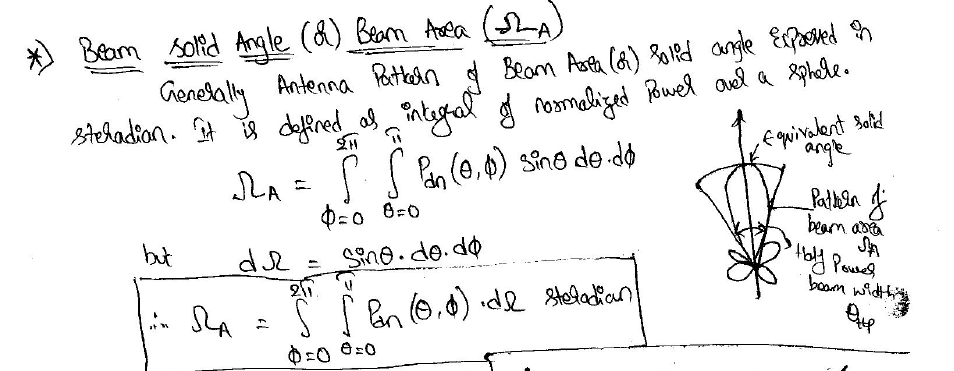 *) Beam Solid Angle (or) Beam Area (Ω_A)
Generally Antenna Pattern of Beam Area (or) Solid angle Expressed in
steradian. It is defined as integral of normalized Power over a sphere.
Ω_A = ∫_{φ=0}^{2π} ∫_{θ=0}^{π} P_dn (θ, φ) sinθ dθ.dφ
but dΩ = sinθ. dθ. dφ
∴ Ω_A = ∫_{φ=0}^{2π} ∫_{θ=0}^{π} P_dn (θ, φ) .dΩ steradian
Equivalent Solid
angle
Pattern of
beam area
Ω_A
Half Power
beam width
θ_HP